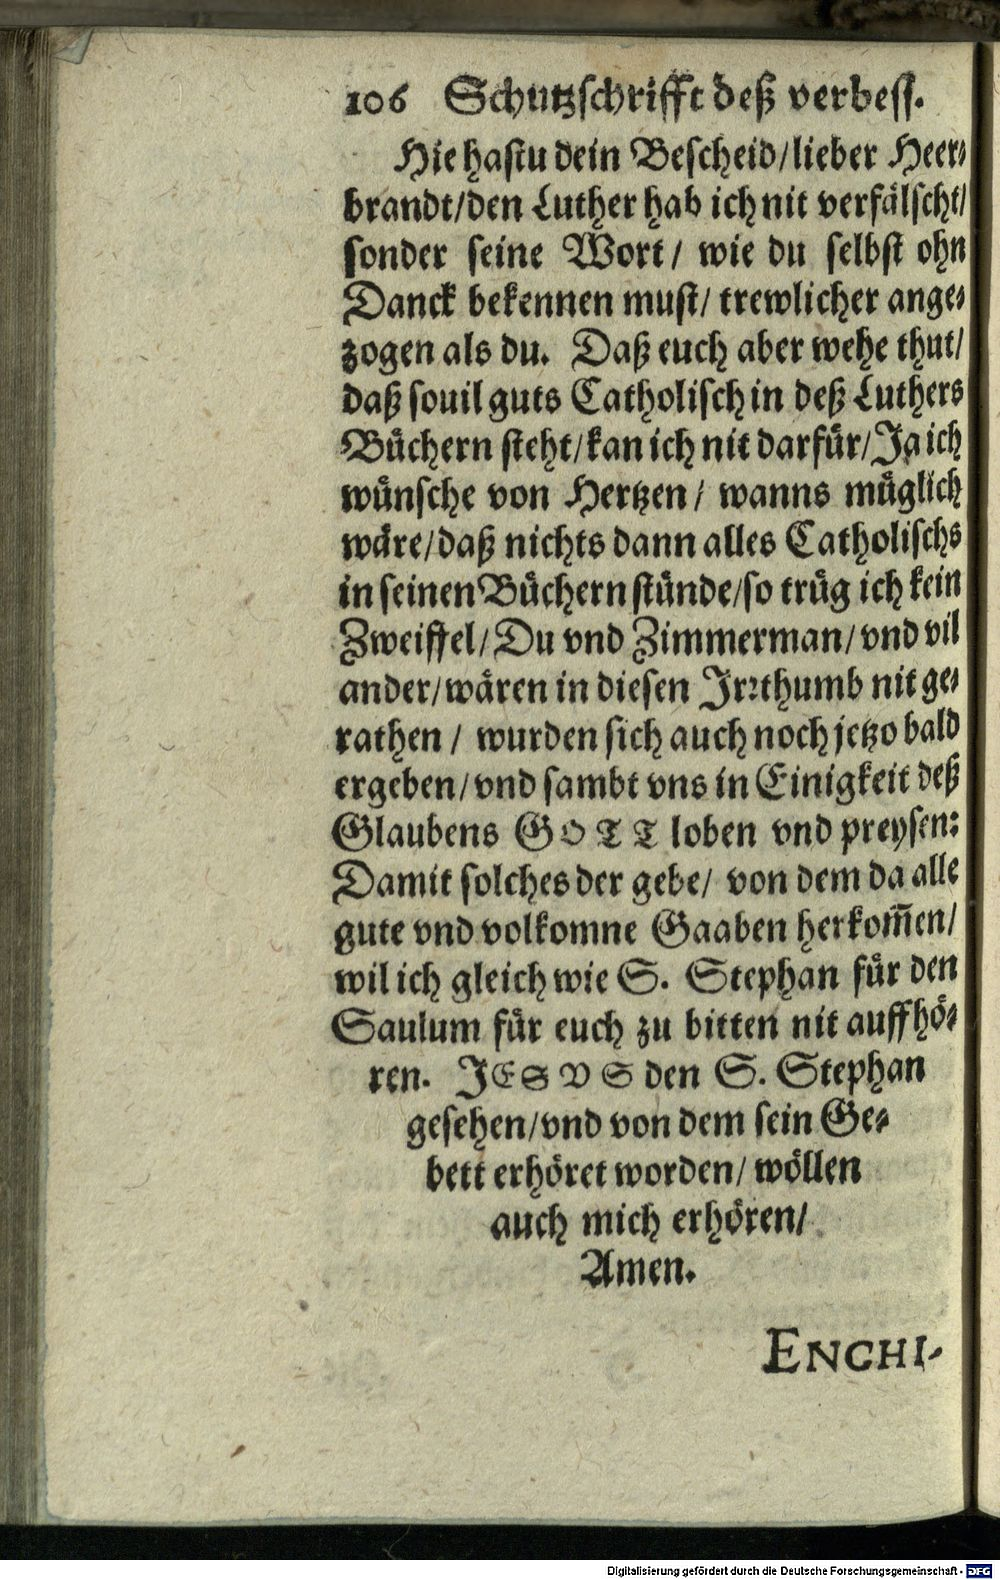 106 Schutzschrifft deß verbess.
Hie hastu dein Bescheid/lieber Heer⸗
brandt/den Luther hab ich nit verfälscht/
sonder seine Wort/ wie du selbst ohn
Danck bekennen must/ trewlicher ange⸗
zogen als du. Daß euch aber wehe thut/
daß souil guts Catholisch in deß Luthers
Büchern steht/kan ich nit darfür/Ja ich
wünsche von Hertzen/ wanns müglich
wäre/daß nichts dann alles Catholischs
in seinen Büchern stünde/so trüg ich kein
Zweiffel/Du vnd Zimmerman/vnd vil
ander/wären in diesen Jrꝛthumb nit ge⸗
rathen/ wurden sich auch noch jetzo bald
ergeben/vnd sambt vns in Einigkeit deß
Glaubens GOTT loben vnd preysen:
Damit solches der gebe/ von dem da alle
gute vnd volkomne Gaaben herkom̃en/
wil ich gleich wie S. Stephan für den
Saulum für euch zu bitten nit auffhö⸗
ren. JESVS den S. Stephan
gesehen/vnd von dem sein Ge⸗
bett erhöret worden/ wöllen
auch mich erhören/
Amen.
ENCHI-
Digitalisierung gefördert durch die Deutsche Forschungsgemeinschaft - DFG